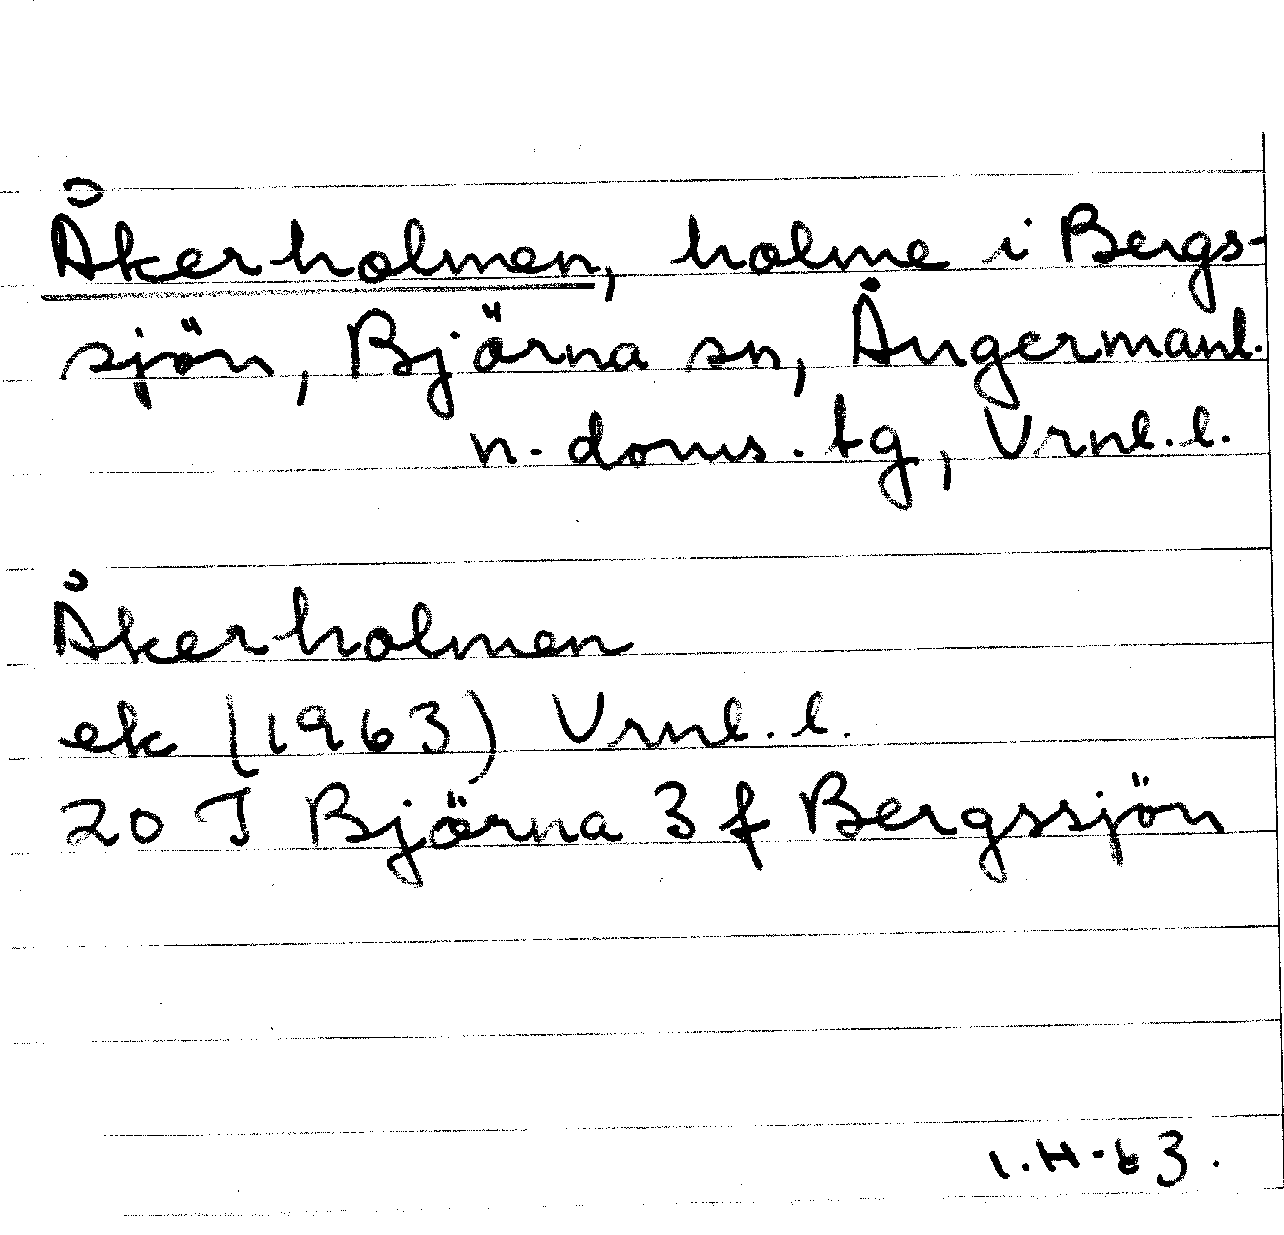 Åkerholmen, holme i Bergs-
sjön, Björna sn, Ångermanl.
n. doms. tg, Vrnl. l.
Åkerholmen
ek (1963) Vrnl. l.
20 J Björna 3 f Bergssjön
I.H-63.